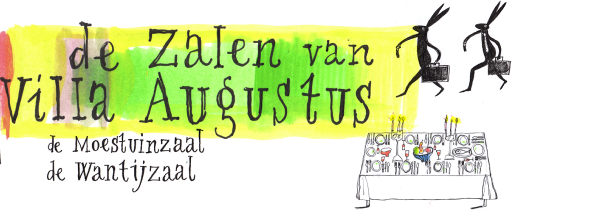 de Zalen van
Villa Augustus
de Moestuinzaal
de Wantijzaal